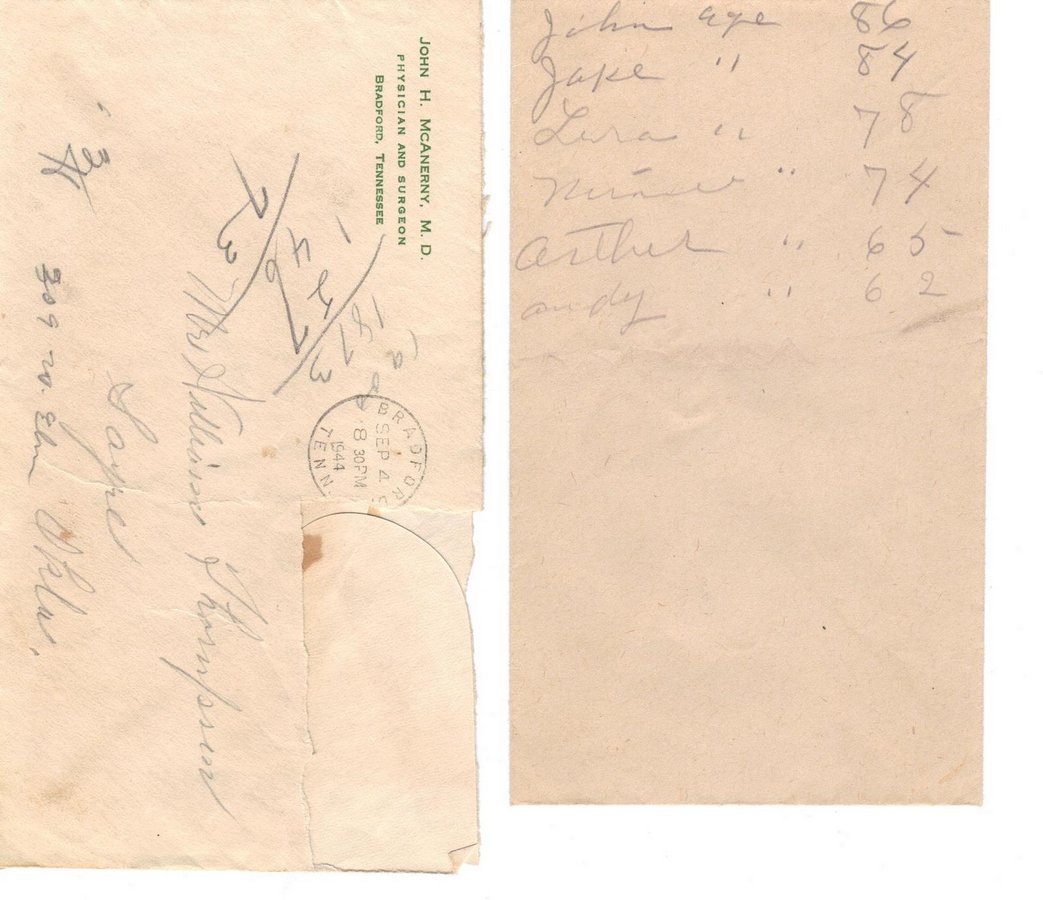 JOHN H. MCANERNY, M. D.
PHYSICIAN AND SURGEON
BRADFORD, TENNESSEE
BRADFOR
SEP 4
8 30PM
1944
TENN.
Mr William Thompson
Sayre
309 W. Elm Okla.
John age 86
Jake " 84
Lura " 78
" 74
Arthur " 65
andy " 62